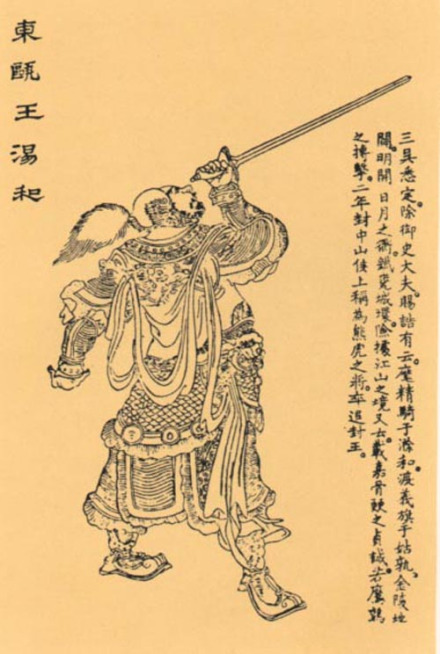 東甌王湯和
三吳悉定。除御史大夫。賜誥有云。麾精騎于滁和。渡義旗于姑孰。金陵地
闢。明開日月之衢。鐵瓮城環。險據江山之境。又云。載嘉骨鯁之貞誠。若鷹鸇
之搏擊。二年封中山侯。上稱為熊虎之將。卒追封王。